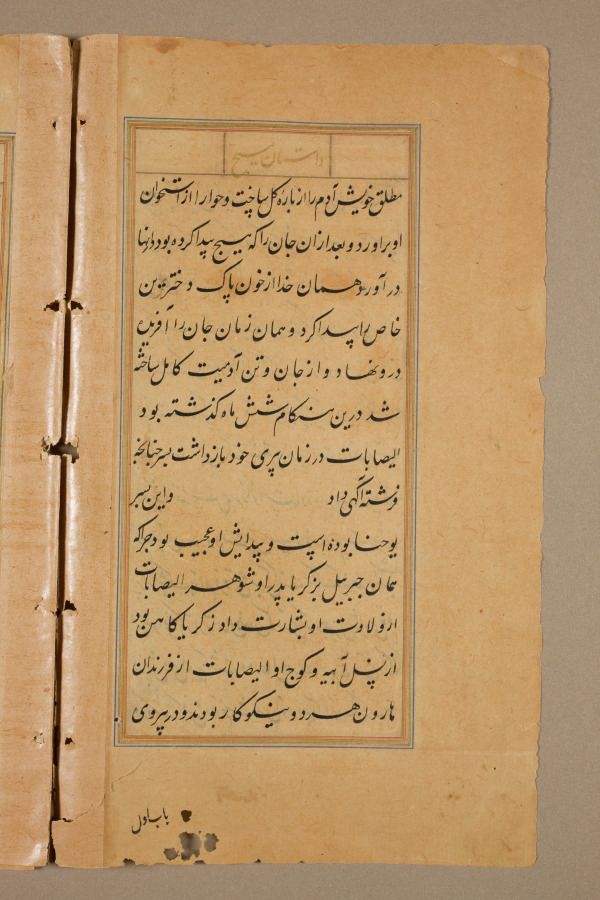 داستان مسیح
مطلق خویش آدم را از پارهٔ کل ساخت و حوا را از استخوان
او برآورد و بعد ازان جان را که هیچ پیدا کرده بود درانها
در آورد همان خدا از خون پاک دختر این
خاص را پیدا کرد و همان زمان جان را آفرین
درو نهاد و از جان و تن آدمیت کامل ساخته
شد درین هنکام شش ماه کذشته بود
الیصابات در زمان پیری خود بازداشت بسر چنانچه
فرشته آکهی داد واین بسر
یوحنا بوده است و پیدایش او عجیب بود چراکه
همان جبرییل بزکریا پدر او شوهر الیصابات
از ولادت او بشارت داد زکریا کاهن بود
از نسل آبیه و کوچ او الیصابات از فرزندان
هارون هر دو نیکوکار بودند و در پیروی
باب اول